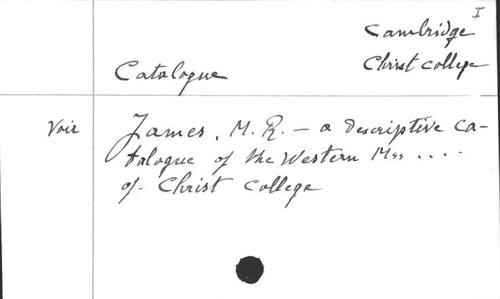 I
Cambridge
Christ college
Catalogue
Voir
James, M. R. — a descriptive ca-
talogue of the Western Mss ....
of Christ College